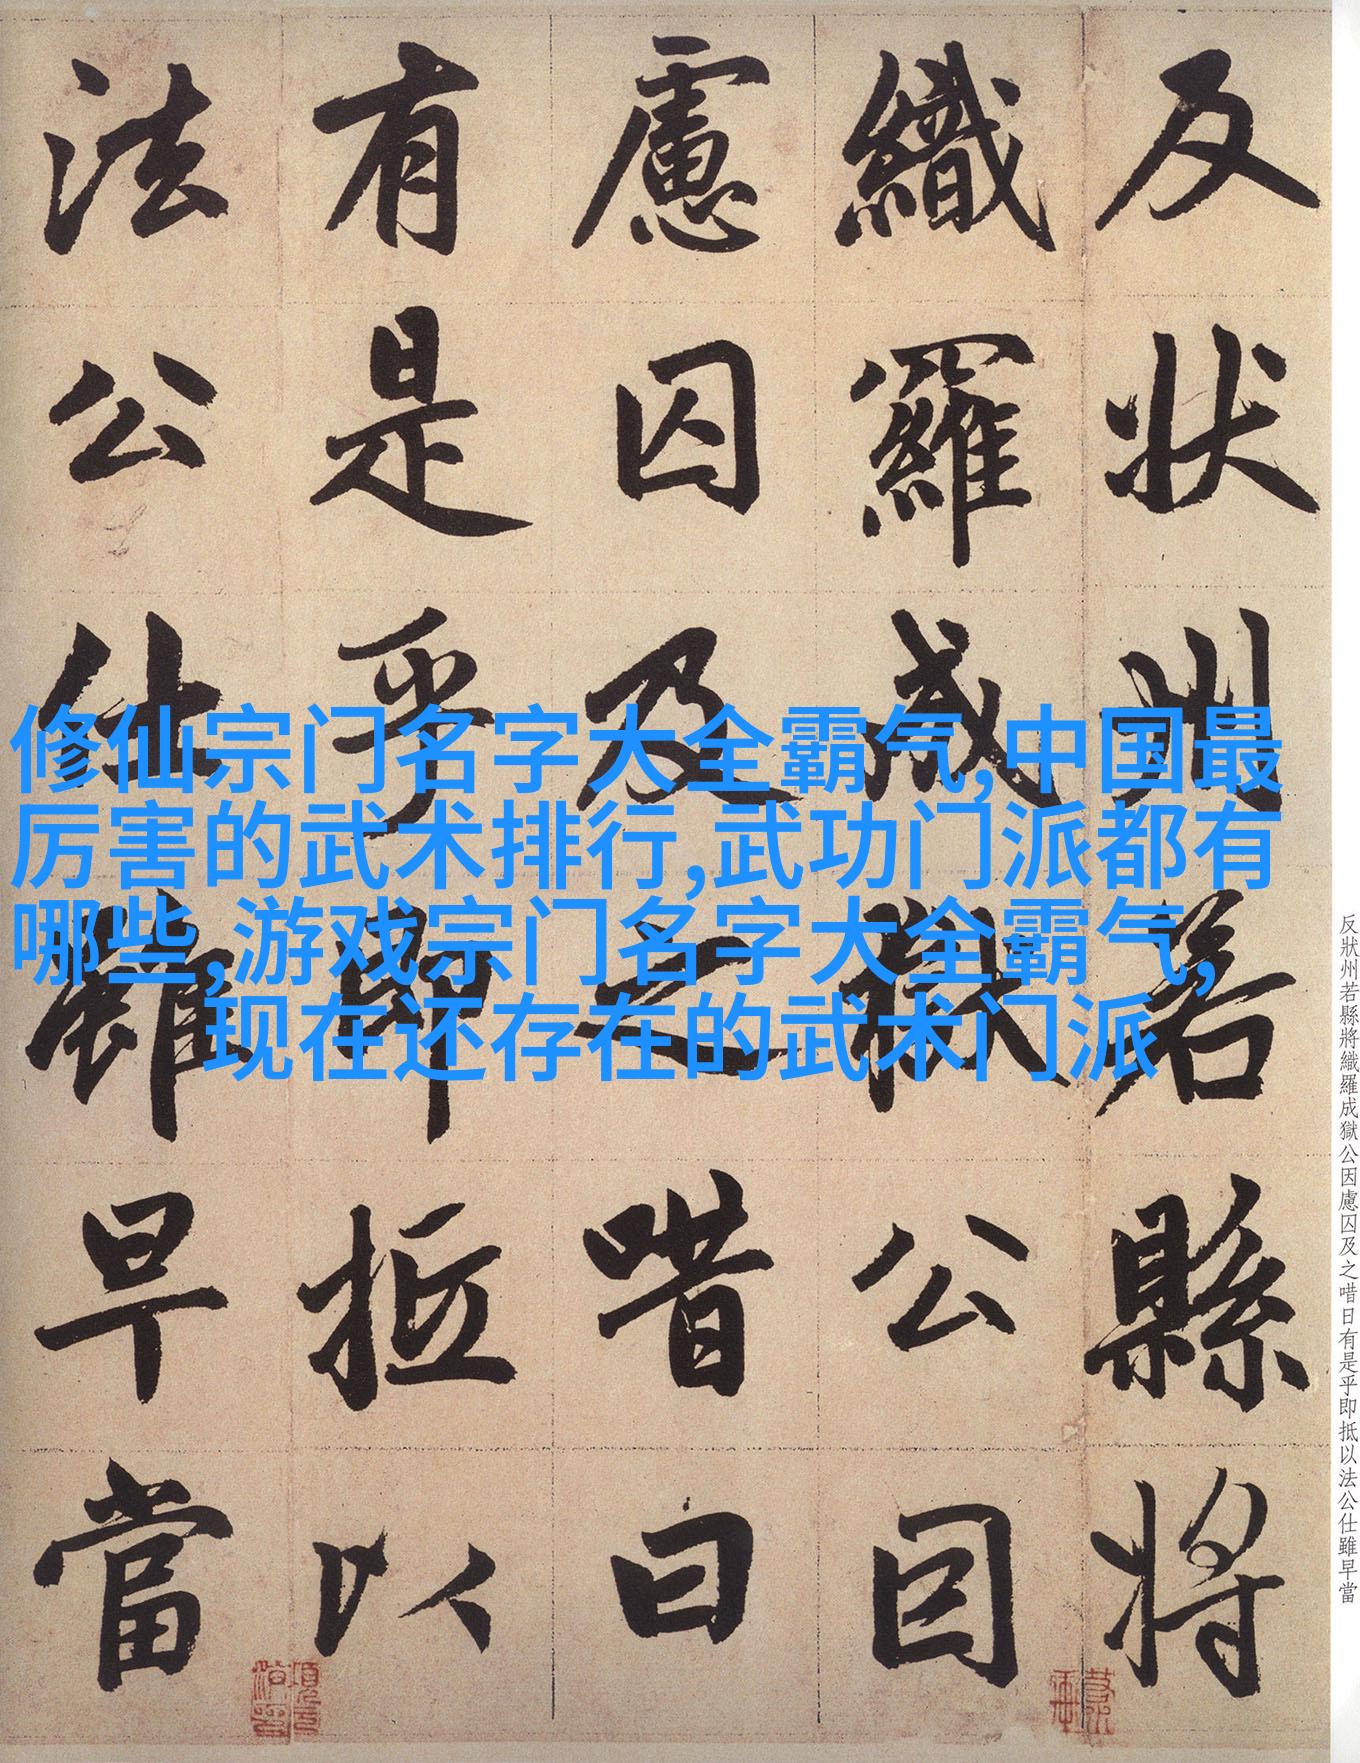 反状州若縣將
織羅成獄公因
慮囚及之喈曰
有是乎即抵以
法公仕雖早當
修仙宗门名字大全霸气,中国最
厉害的武术排行,武功门派都有
哪些,游戏宗门名字大全霸气,
现在还存在的武术门派
反狀州若縣將織羅成獄公因慮囚及之唶日有是乎即抵以法公仕雖早當